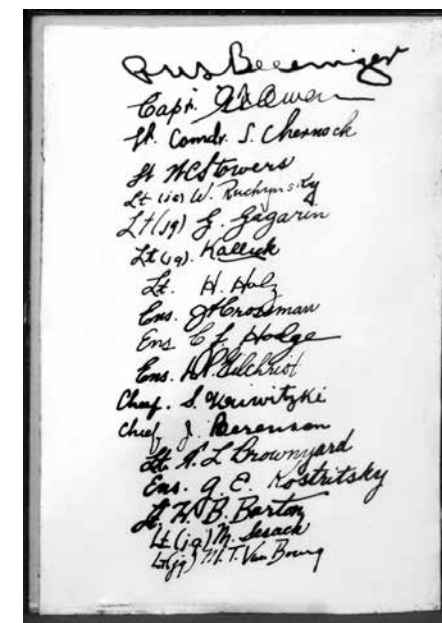 Capt. Owen
Lt. Comdr. S. Chernock
Lt WC Stowers
Lt (jg) W. Ruchynsity
Lt (jg) G. Gagarin
Lt (jg). Kallick
Lt. H. Holz
Ens. J H Crossman
Ens C L Hodge
Ens. H.P. Gilchrist
Chief. S. Kurwitzki
Chief J. Berenson
Lt. T. L Brownyard
Ens. G. E. Kostritsky
Lt. H. B. Barton
Lt (jg) M. Sesack
Lt (jg) M. T. Van Bourg